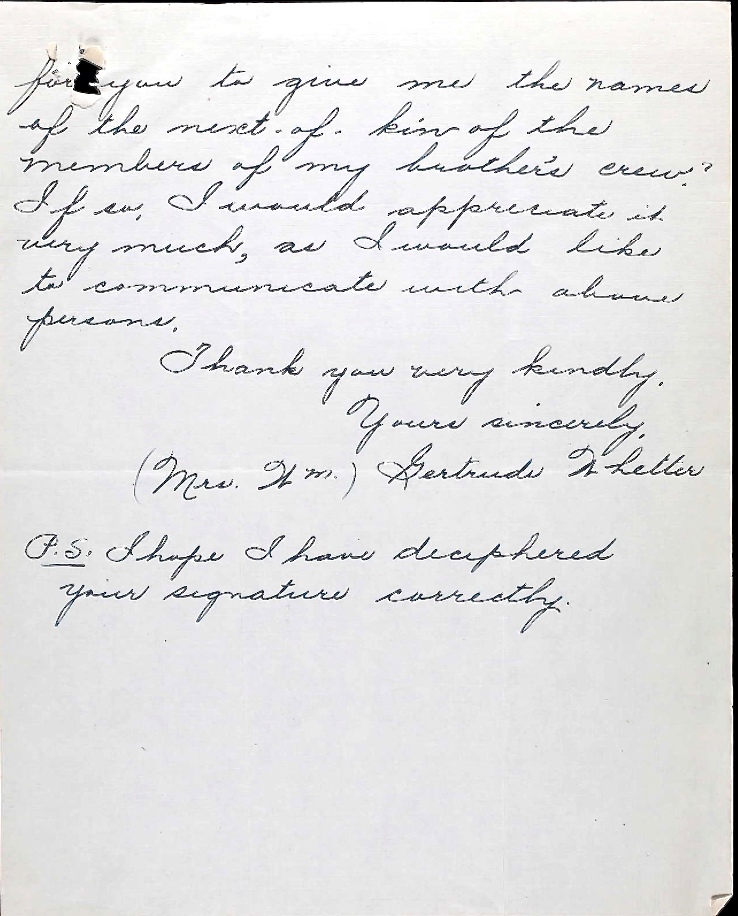 for you to give me the names
of the next-of-kin of the
members of my brother's crew?
If so, I would appreciate it
very much, as I would like
to communicate with above
persons.
Thank you very kindly.
Yours sincerely,
(Mrs. Wm.) Gertrude Whetter
P.S. I hope I have deciphered
your signature correctly.